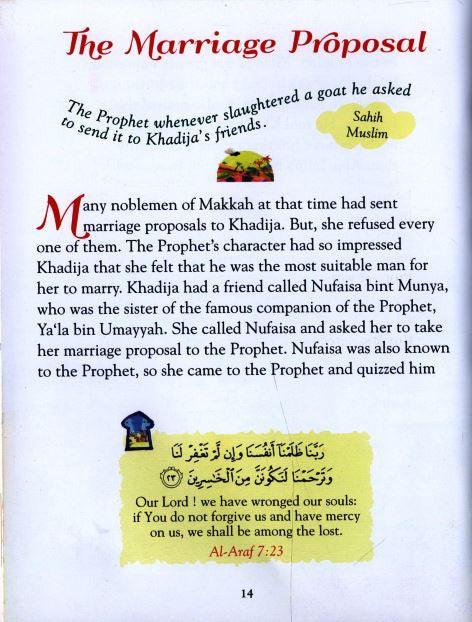 The Marriage Proposal
The Prophet whenever slaughtered a goat he asked
to send it to Khadija's friends.
Sahih
Muslim
Many noblemen of Makkah at that time had sent
marriage proposals to Khadija. But, she refused every
one of them. The Prophet's character had so impressed
Khadija that she felt that he was the most suitable man for
her to marry. Khadija had a friend called Nufaisa bint Munya,
who was the sister of the famous companion of the Prophet,
Ya‘la bin Umayyah. She called Nufaisa and asked her to take
her marriage proposal to the Prophet. Nufaisa was also known
to the Prophet, so she came to the Prophet and quizzed him
رَبَّنَا ظَلَمْنَا أَنفُسَنَا وَإِن لَّمْ تَغْفِرْ لَنَا
وَتَرْحَمْنَا لَنَكُونَنَّ مِنَ الْخَاسِرِينَ ٢٣
Our Lord ! we have wronged our souls:
if You do not forgive us and have mercy
on us, we shall be among the lost.
Al-Araf 7:23
14